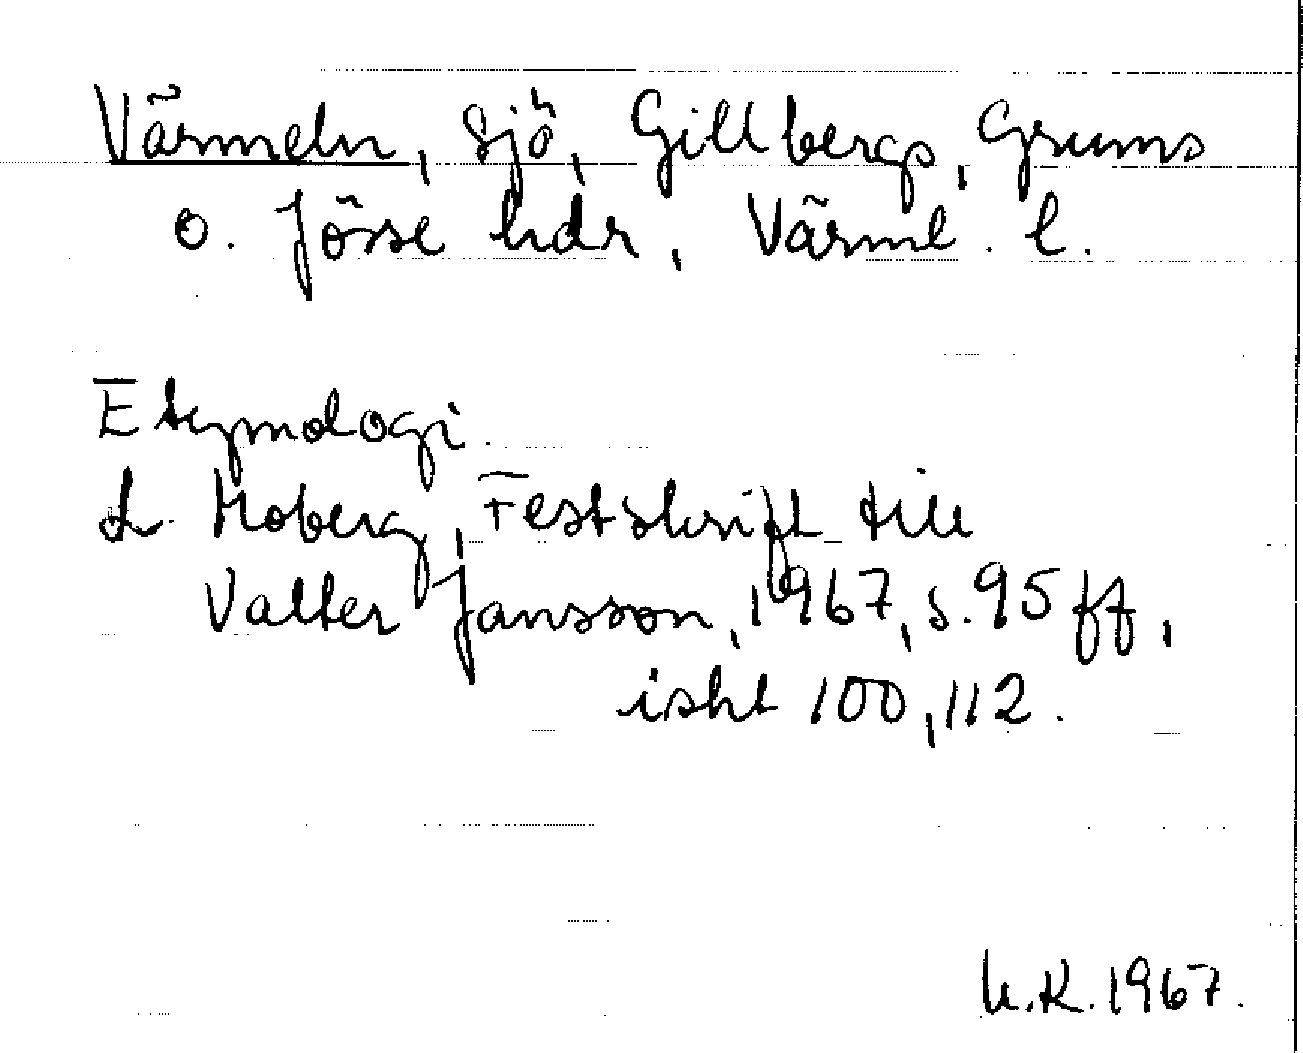 Värmeln, sjö, Gillbergs, Grums
o. Jösse hdr, Värml. l.
Etymologi.
L. Moberg, Festskrift till
Valter Jansson, 1967, s. 95 ff,
isht 100, 112.
K.R. 1967.